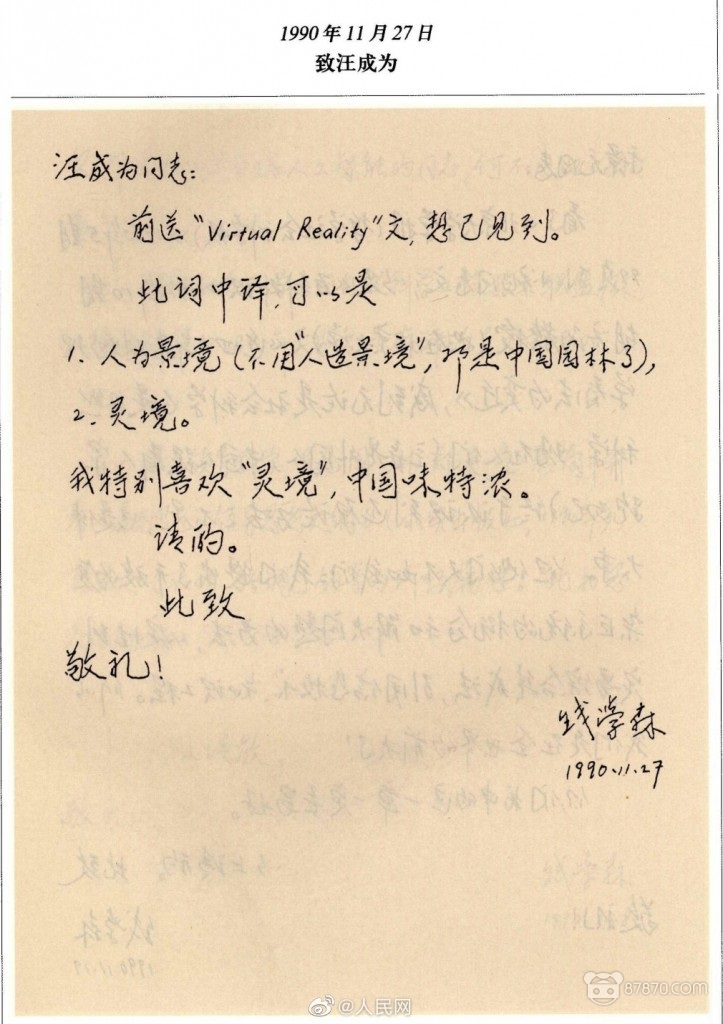 1990年11月27日
致汪成为
汪成为同志：
前送“Virtual Reality”文，想已见到。
此词中译，可以是
1. 人为景境（不用“人造景境”，那是中国园林了），
2. 灵境。
我特别喜欢“灵境”，中国味特浓。
请酌。
此致
敬礼！
钱学森
1990.11.27
@人民网
87870.com